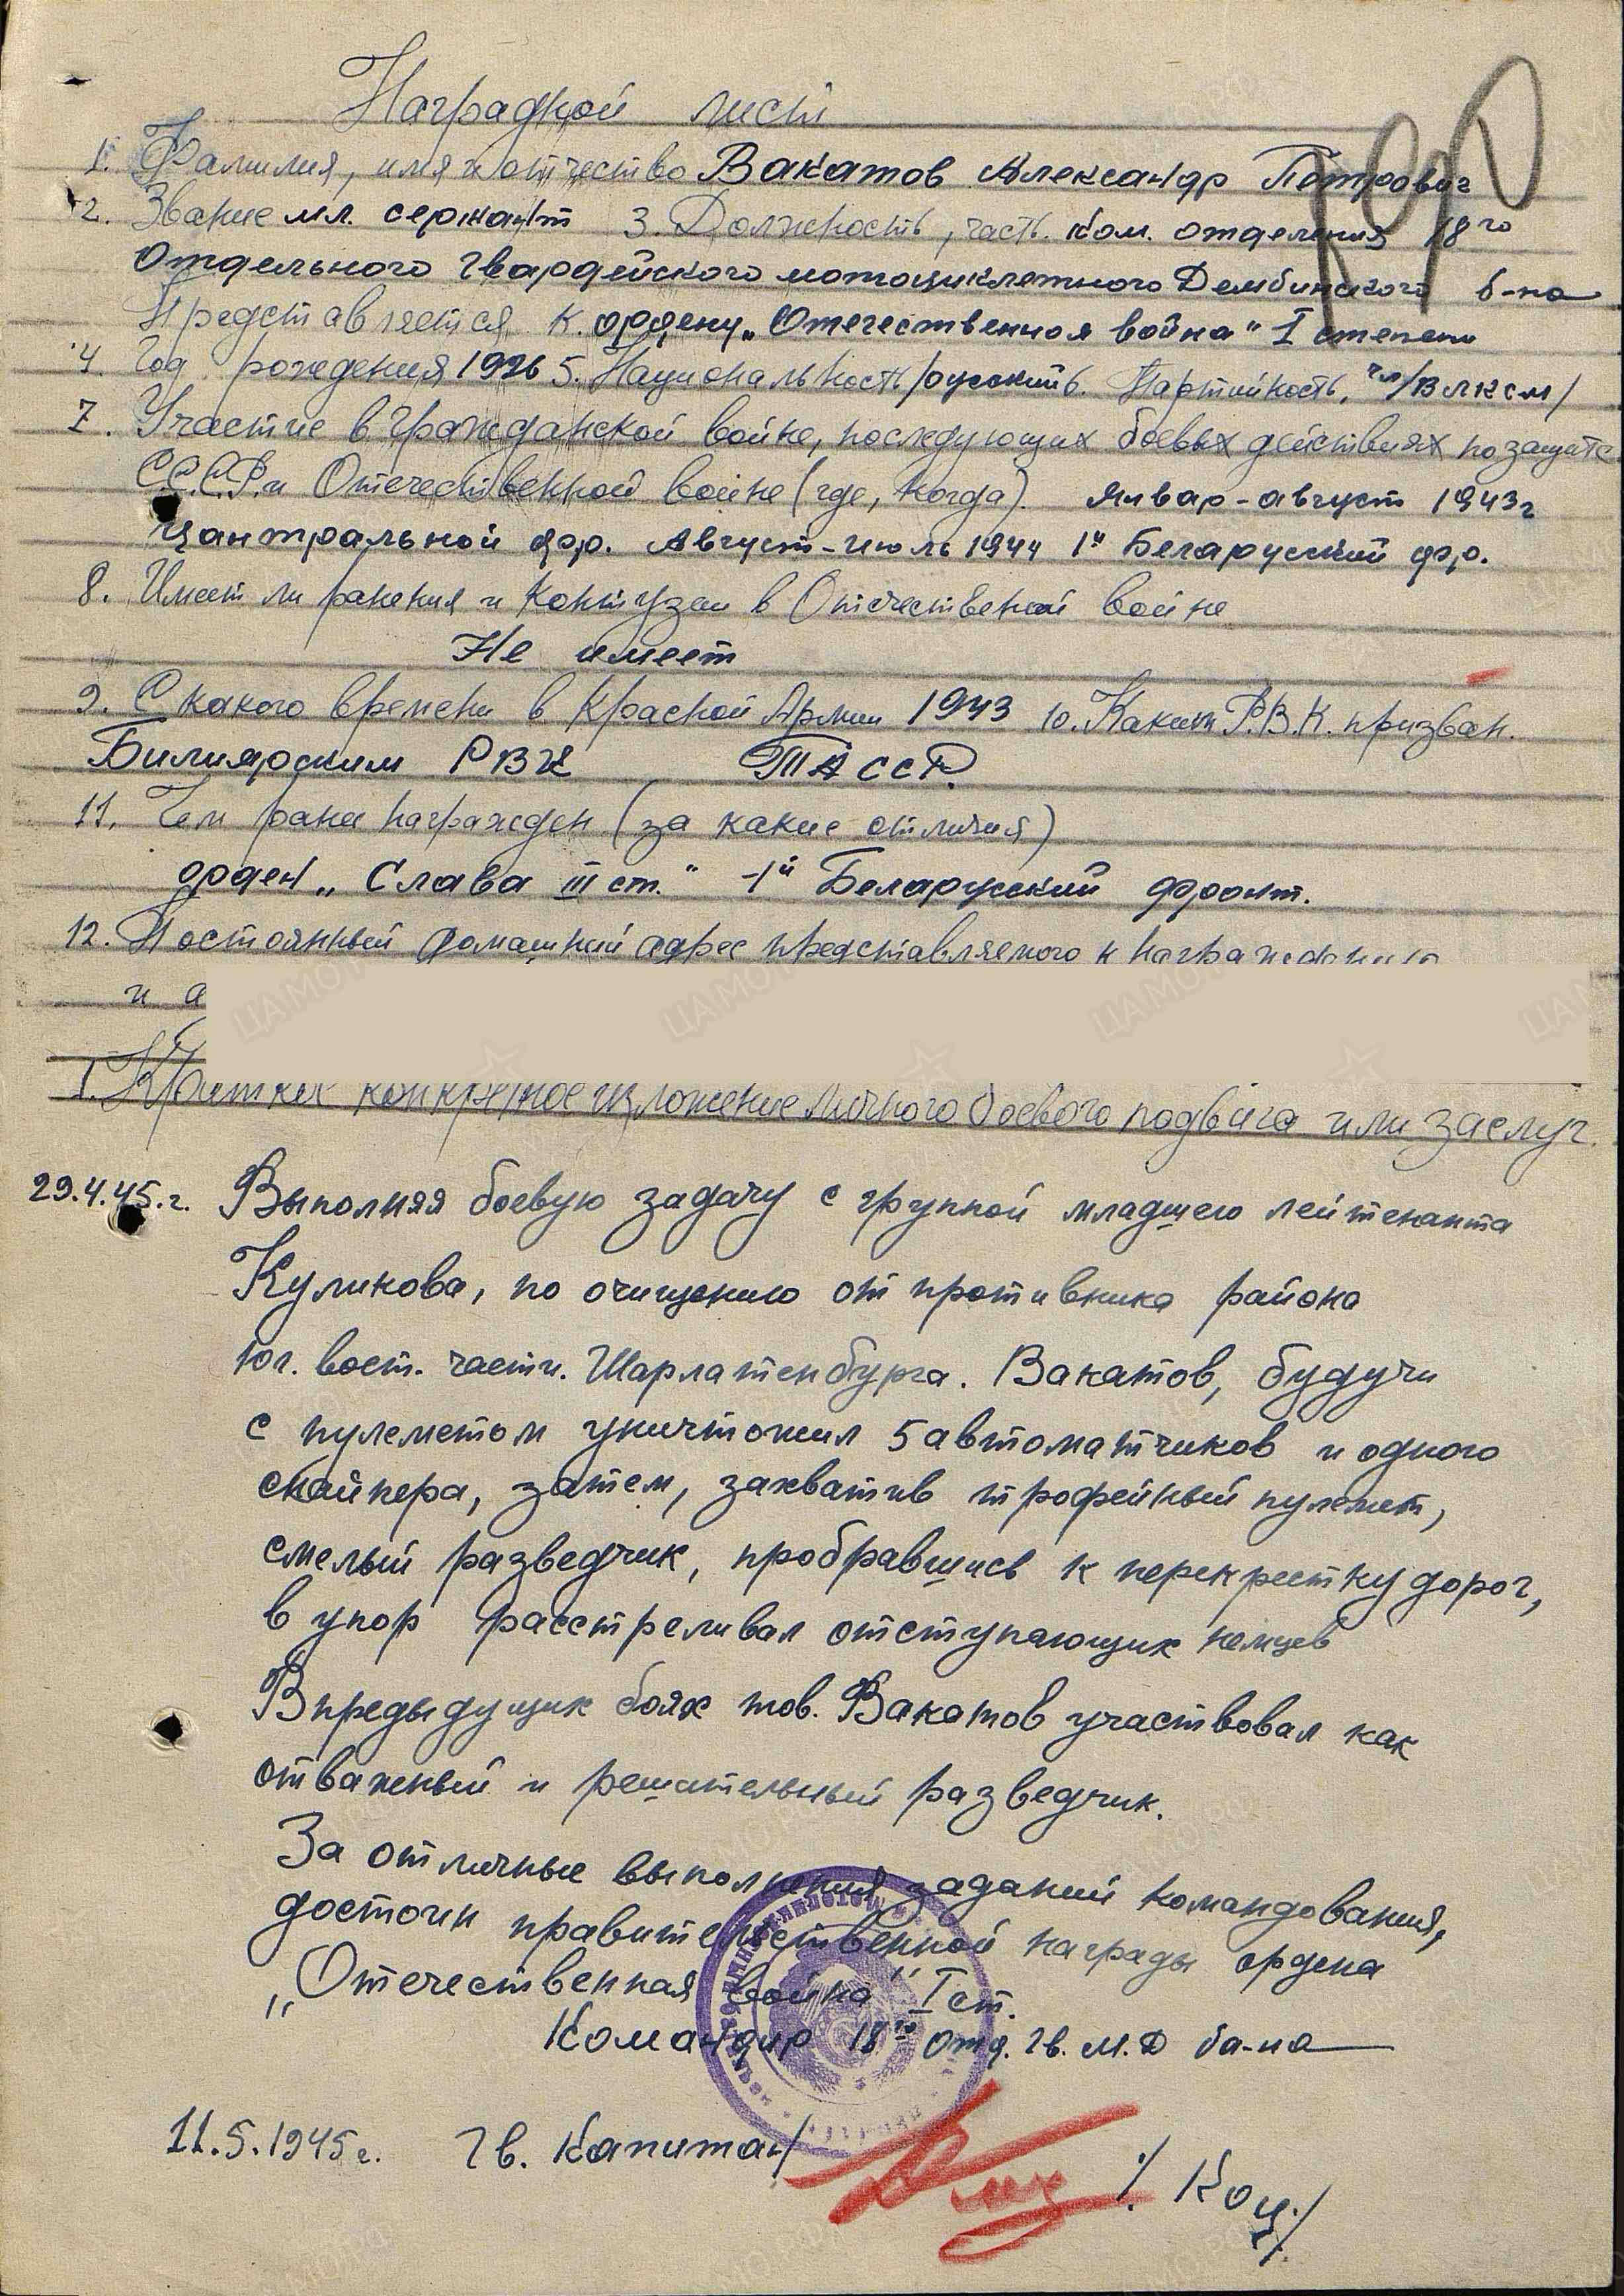 Наградной лист
1. Фамилия, имя и отчество Вакатов Александр Петрович
2. Звание мл. сержант 3. Должность, часть. ком. отделения 18го
Отдельного Гвардейского мотоциклетного Дембинского б-на
Представляется к ордену „Отечественная война" I степени
4. Год рождения 1926 5. Национальность русский 6. Партийность, чл/ВЛКСМ/
7. Участие в гражданской войне, последующих боевых действиях по защите
С.С.С.Р. и Отечественной войне (где, когда). Январ-август 1943г
Цантральной фр. Август-июль 1944 1й Беларусский фр.
8. Имеет ли ранения и контузии в Отечественной войне
Не имеет
9. С какого времени в Красной Армии 1943 10. Каким Р.В.К. призван.
Билиярским РВК ТАССР.
11. Чем ранее награжден (за какие отличия)
орден „Слава III ст." -1й Беларусский фронт.
12. Постоянный домашний адрес представляемого к награждению
и а
I. Краткое конкретное изложение личного боевого подвига или заслуг.
29.4.45.г. Выполняя боевую задачу с группой младшего лейтенанта
Куликова, по очищению от противника района
юг. вост. части. Шарлатенбурга. Вакатов, будучи
с пулеметом уничтожил 5 автоматчиков и одного
снайпера, затем, захватив трофейный пулемет,
смелый разведчик, пробравшись к перекрестку дорог,
в упор расстреливал отступающих немцев
В предыдущих боях тов. Вакатов участвовал как
отважный и решительный разведчик.
За отличные выполнения заданий командования,
достоин правительственной награды ордена
„Отечественная война" I ст.
Командир 18го отд. Гв. М.Д ба-на
11.5.1945г. Гв. Капитан /Коц/